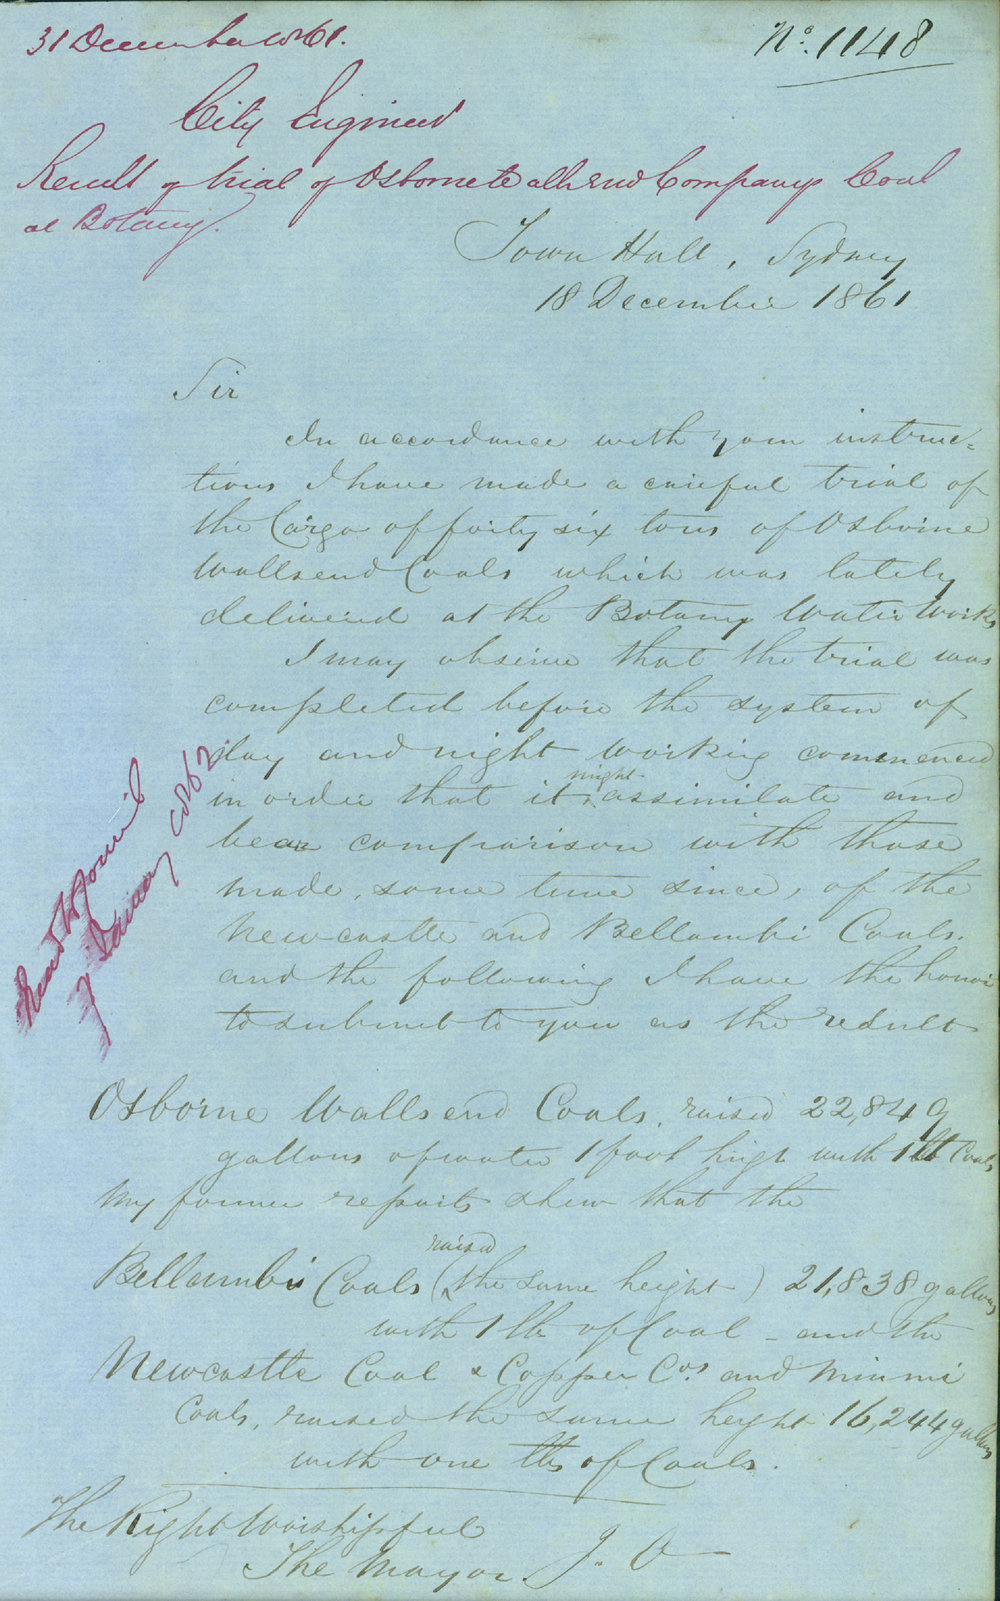 31 December 1861.
No. 1148
City Engineer
Result of trial of Osborne Wallsend Company's Coal
at Botany.
Town Hall, Sydney
18 December 1861
Sir
In accordance with your instruc=
tions I have made a careful trial of
the Cargo of forty six tons of Osborne
Wallsend Coals which was lately
delivered at the Botany Water Works
I may observe that the trial was
completed before the system of
day and night working commenced
in order that it might assimilate and
bear comparison with those
made, some time since, of the
Newcastle and Bellambi Coals.
and the following I have the honor
to submit to you as the result
Read in Council
7 January 1862
Osborne Wallsend Coals, raised 22,849
gallons of water 1 foot high with 1 lb Coals
My former reports shew that the
Bellambi Coals (raised the same height) 21,838 gallons
with 1 lb of Coal - and the
Newcastle Coal & Copper Cos and Minmi
Coals, raised the same height 16,244 gallons
with one lb of Coals.
The Right Worshipful
The Mayor. J. O